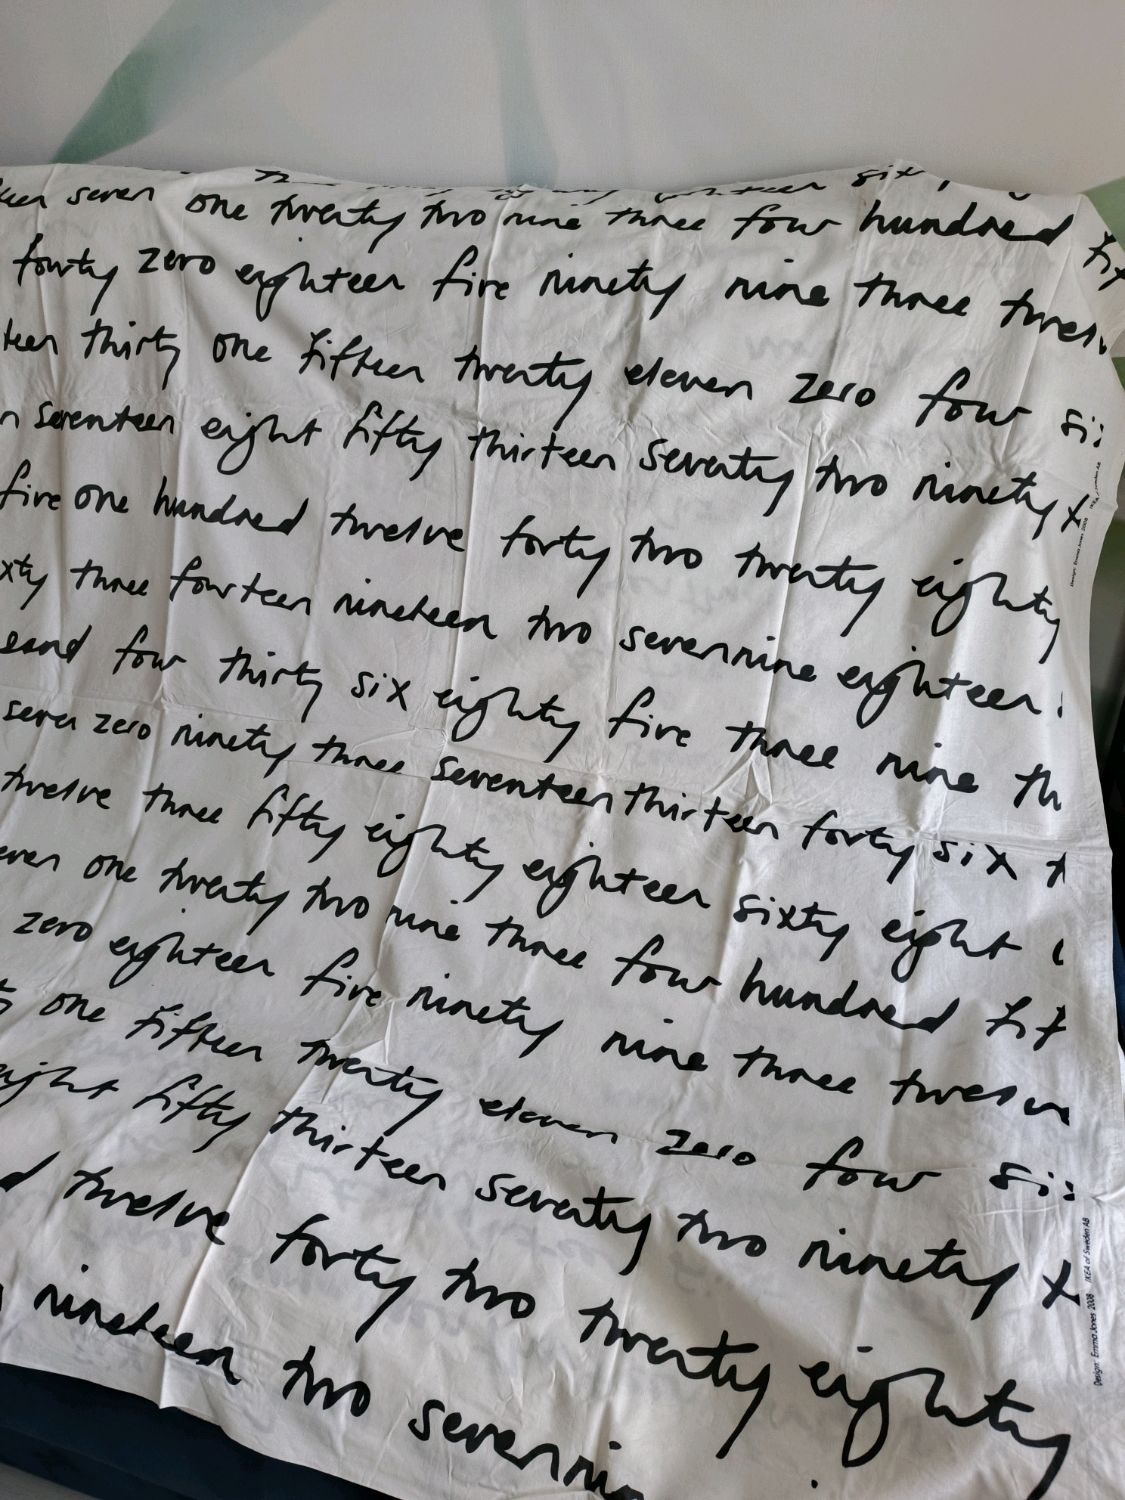 eighteen six
seven one twenty two nine three four hundred
forty zero eighteen five ninety nine three twelv
teen thirty one fifteen twenty eleven zero four si
n seventeen eight fifty thirteen seventy two ninety t
five one hundred twelve forty two twenty eighty
xty three fourteen nineteen two seven nine eighteen
sand four thirty six eighty five three nine th
seven zero ninety three seventeen thirteen forty six t
twelve three fifty eighty eighteen sixty eight
even one twenty two nine three four hundred fif
zero eighteen five ninety nine three twelve
one fifteen twenty eleven zero four si
eight fifty thirteen seventy two ninety t
d twelve forty two twenty eighty
nineteen two seven ni
Design: Emma Jones 2008
Design: Emma Jones 2008 IKEA of Sweden AB